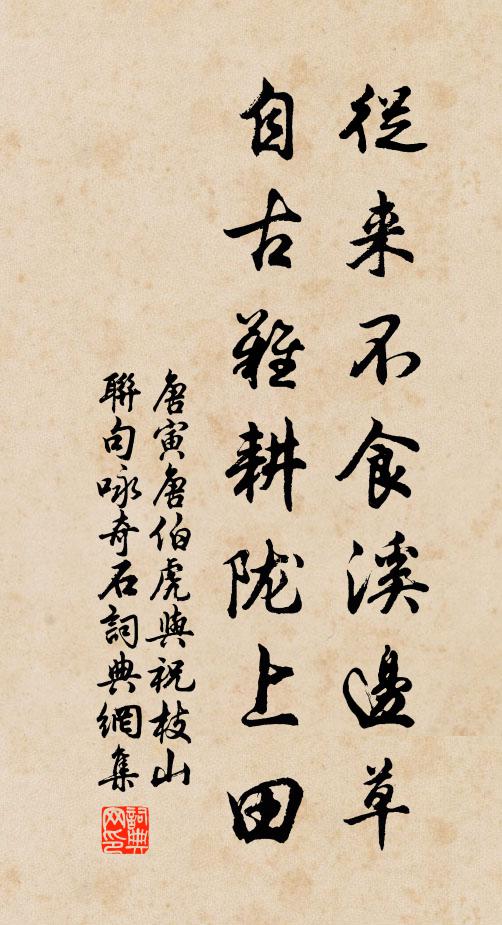 從来不食溪邊草
自古難耕陇上田
唐寅唐伯虎與祝枝山
聯句咏奇石詞典網集
詞典网印